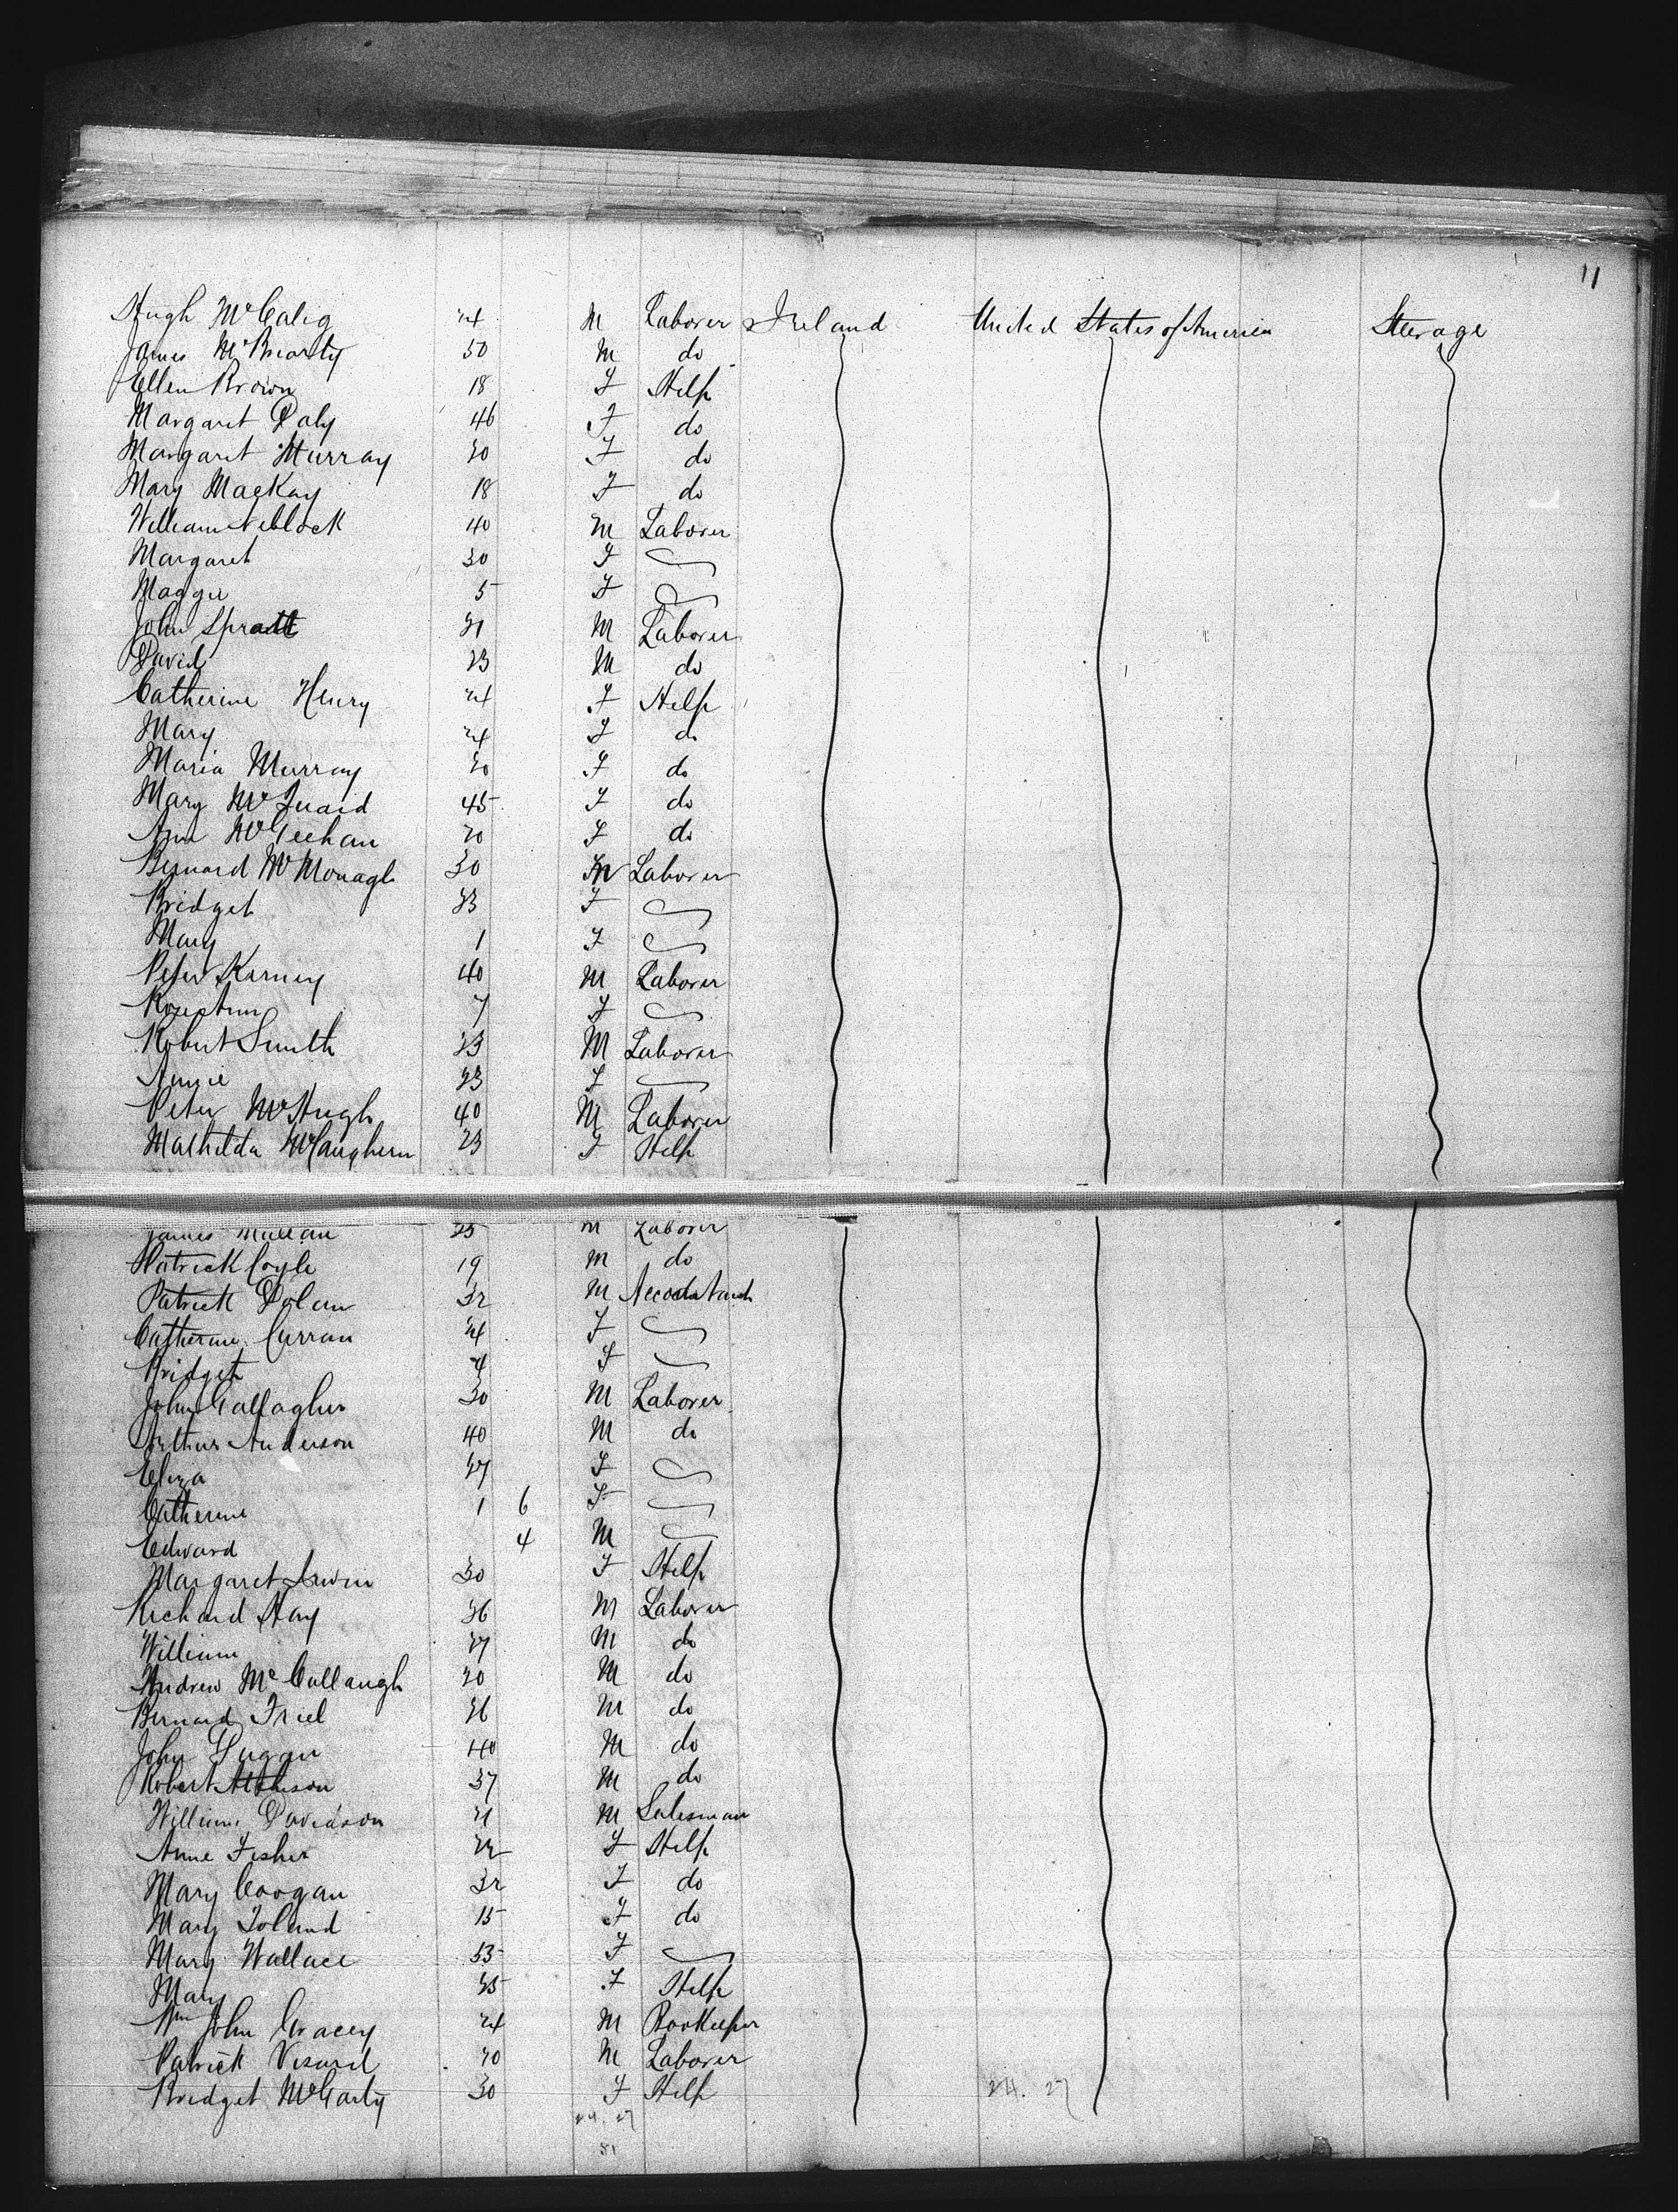 11
Hugh McCalig 24 M Laborer Ireland United States of America Steerage
James McBrearty 50 M do
Ellen Brown 18 F Help
Margaret Daly 46 F do
Margaret Murray 20 F do
Mary MacKay 18 F do
William Neblock 40 M Laborer
Margaret 30 F
Maggie 5 F
John Spratt 21 M Laborer
David 23 M do
Catherine Henry 24 F Help
Mary 24 F do
Maria Murray 20 F do
Mary McQuaid 45 F do
Ann McGeehan 20 F do
Bernard McMonagle 30 M Laborer
Bridget 23 F
Mary 1 F
Peter Karney 40 M Laborer
Rose Ann 7 F
Robert Smith 23 M Laborer
Annie 23 F
Peter McHugh 40 M Laborer
Mathilda McCaughern 23 F Help
James Mullan 25 M Laborer
Patrick Coyle 19 M do
Patrick Dolan 32 M Accountant
Catherine Curran 24 F
Bridget 4 F
John Gallagher 30 M Laborer
Arthur Anderson 40 M do
Eliza 27 F
Catherine 1 6 F
Edward 4 M
Margaret Irwin 30 F Help
Richard Hay 26 M Laborer
William 27 M do
Andrew McCullaugh 20 M do
Bernard Friel 26 M do
John Dugan 40 M do
Robert Atchison 37 M do
William Davidson 21 M Salesman
Anne Fisher 22 F Help
Mary Coogan 32 F do
Mary Toland 15 F do
Mary Wallace 53 F
Mary 25 F Help
Wm John Gracey 24 M Bookeeper
Patrick 20 M Laborer
Bridget McGarty 30 F Help
24. 27
24. 27
51